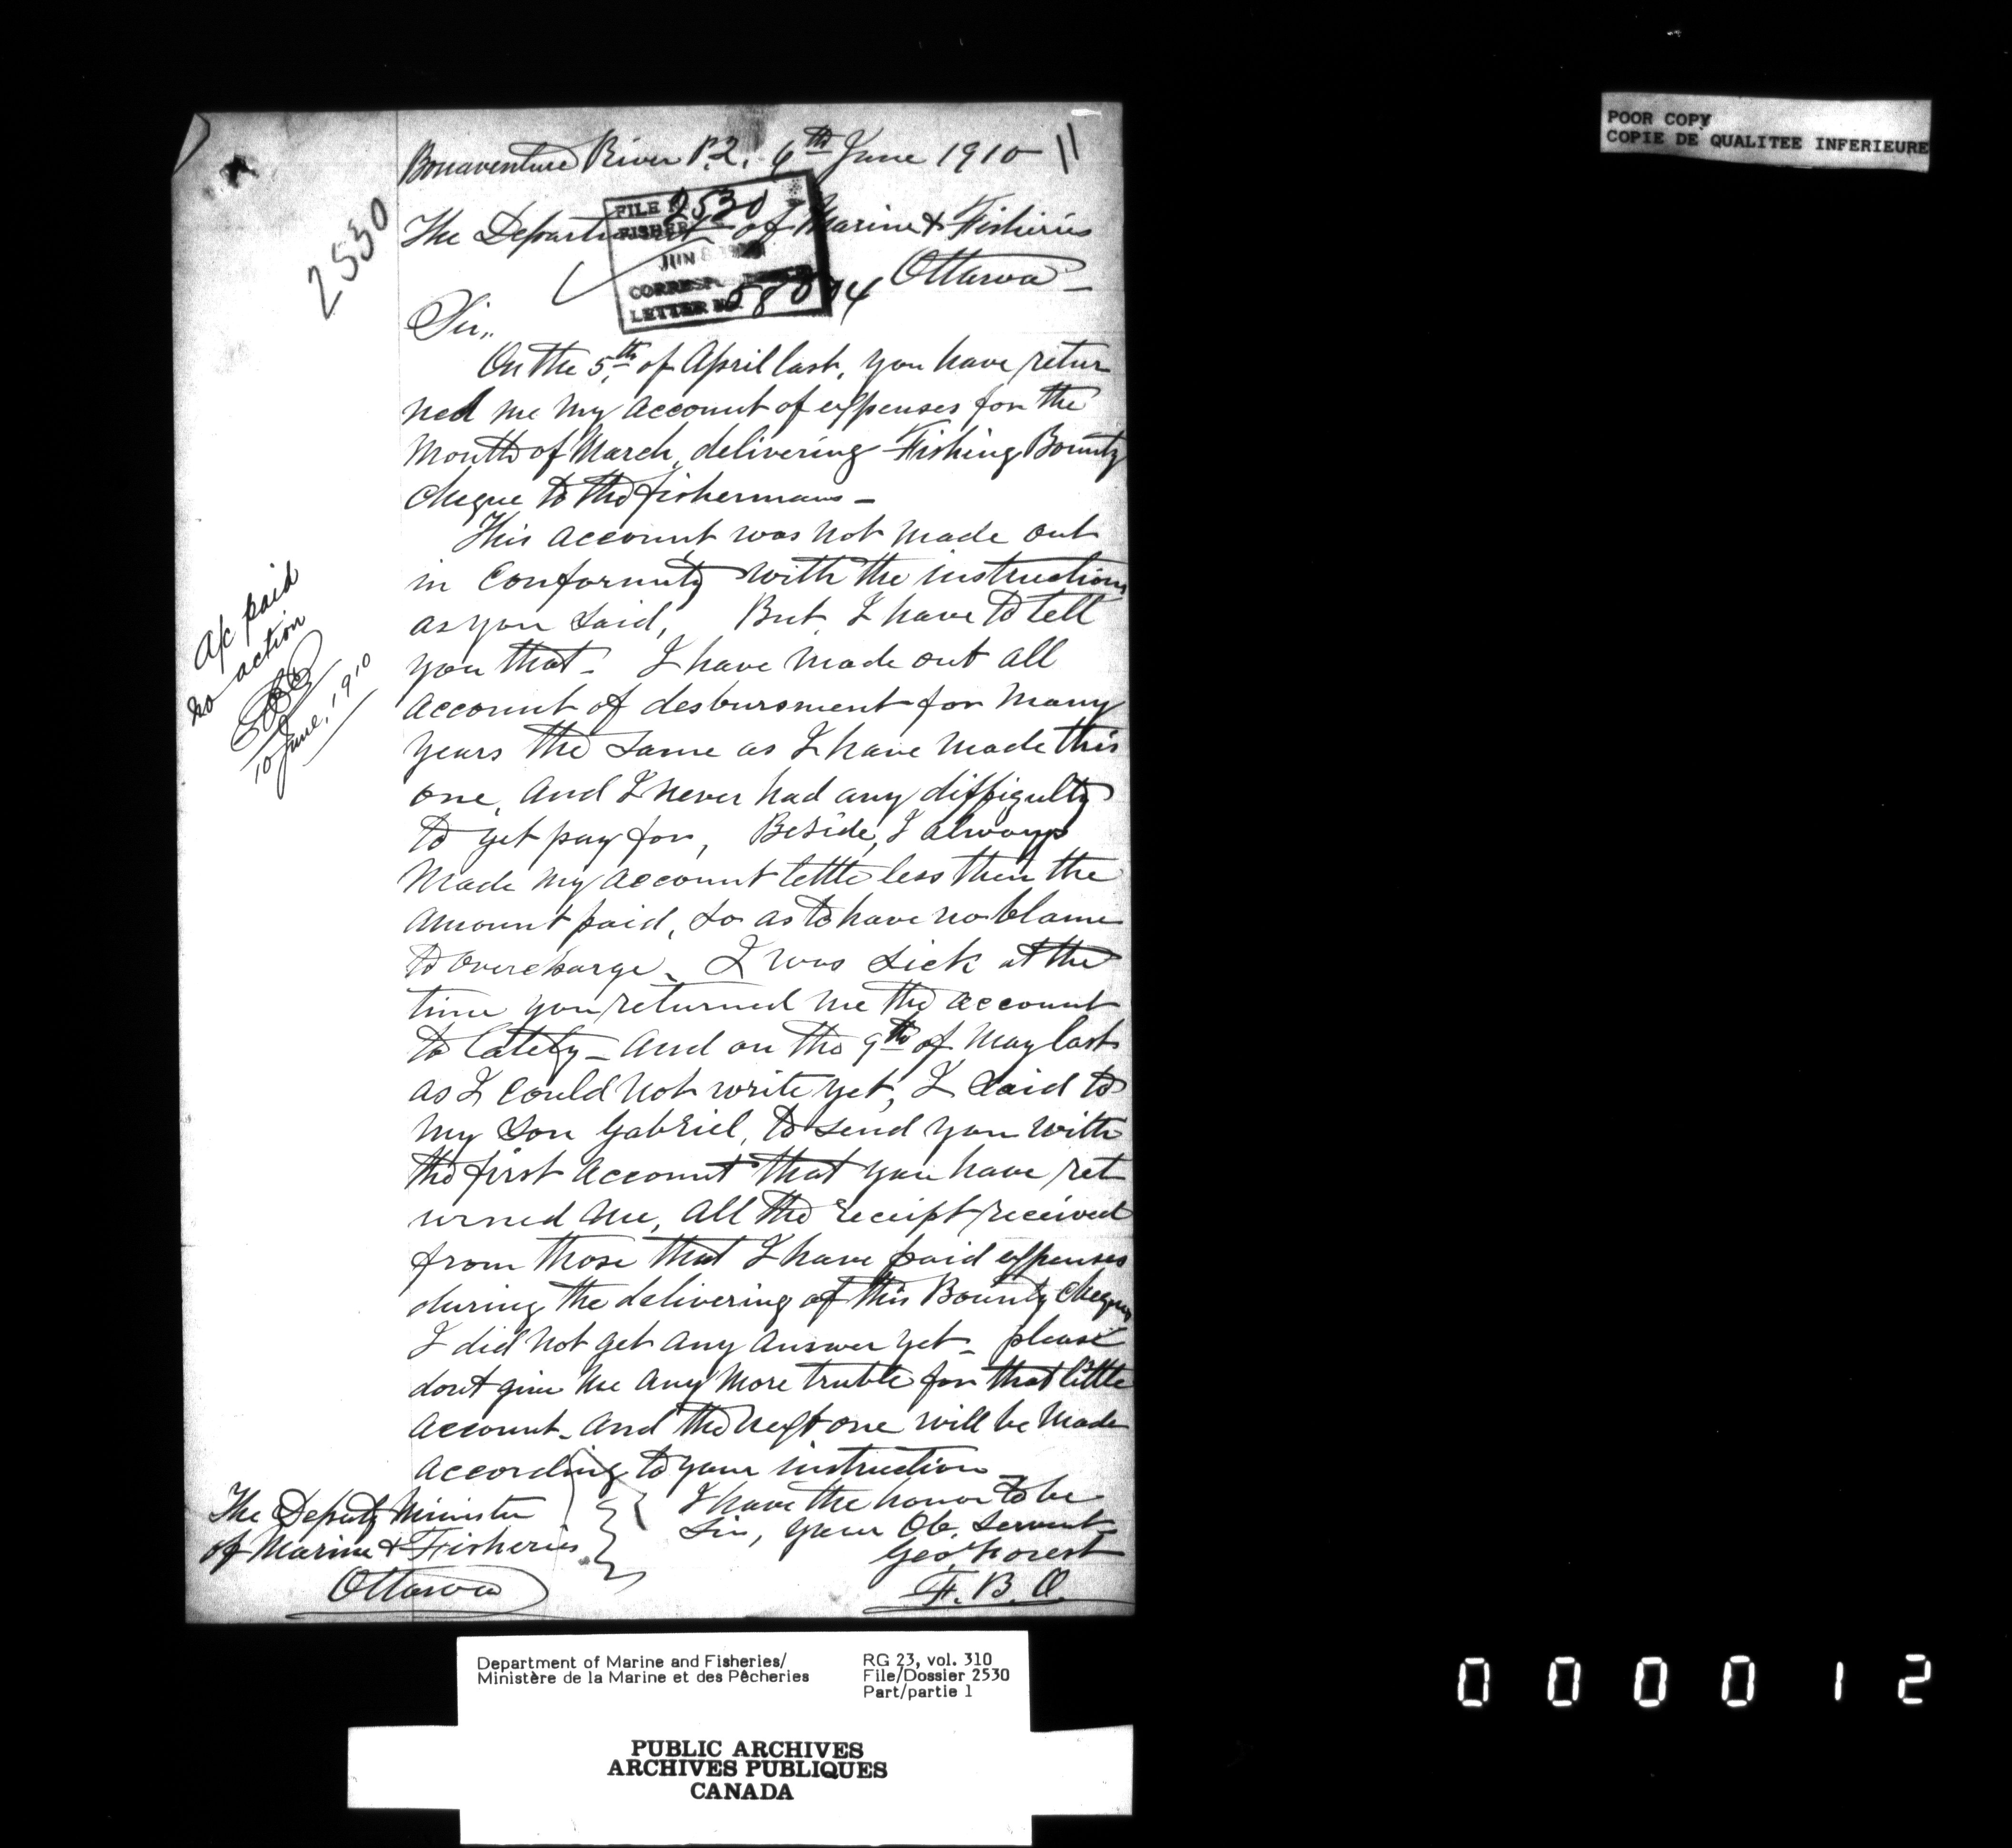 POOR COPY
COPIE DE QUALITEE INFERIEURE
Bonaventure River P.Q. 6th June 1910
11
2530
FILE 2530
FISHER
JUN 8
CORRESP
LETTER No 58074
The Department of Marine & Fisheries
Ottawa
Sir,
On the 5th of April last, you have retur
ned me my account of expenses for the
month of March, delivering Fishing Bounty
cheque to the fishermans
This account was not made out
in conformity with the instructions
as you said, But, I have to tell
you that I have made out all
account of desbursment for many
years the same as I have made this
one, and I never had any diffigulty
to get pay for, Beside, I always
made my account lettle less then the
amount paid, so as to have no blame
to overcharge. I was sick at the
time you returned me the account
to lately and on the 9th of May last
as I could not write yet, I said to
my son Gabriel, to send you with
the first account that you have ret
urned me, all the receipt received
from those that I have paid expenses
during the delivering of this Bounty cheques
I did not get any answer yet please
dont give me any more truble for that little
account and the next one will be made
according to your instruction
I have the honor to be
Sir, your Ob. Servent
Geo. Forest
F. B. O.
The Deputy Minister
of Marine & Fisheries
Ottawa
A/c paid
no action
10 June, 1910
Department of Marine and Fisheries/
Ministère de la Marine et des Pêcheries
RG 23, vol. 310
File/Dossier 2530
Part/partie 1
PUBLIC ARCHIVES
ARCHIVES PUBLIQUES
CANADA
000012